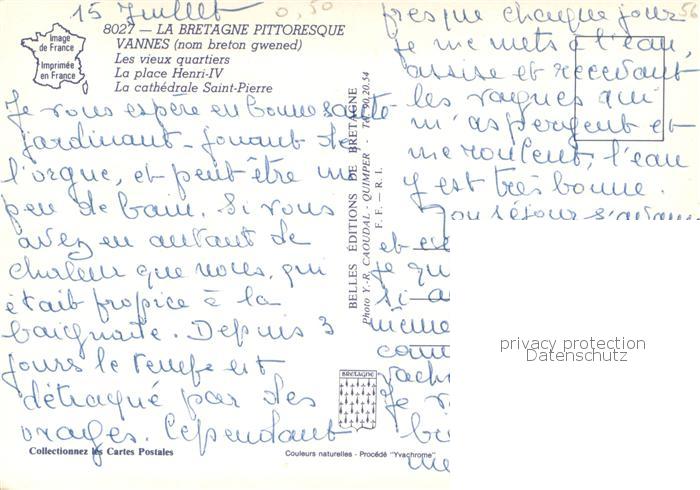 15 Juillet
0,50
56
Image
de France
Imprimée
en France
8027 — LA BRETAGNE PITTORESQUE
VANNES (nom breton gwened)
Les vieux quartiers
La place Henri-IV
La cathédrale Saint-Pierre
Je vous espère en bonne santé
jardinant - jouant de
l'orgue, et peut être un
peu de bain. Si vous
avez eu autant de
chaleur que nous, qui
était propice à la
baignade. Depuis 3
jours le temps est
détraqué par des
orages. Cependant
BELLES ÉDITIONS DE BRETAGNE
Photo Y.-R. CAOUDAL - QUIMPER - Tél. 90.20.54
F. F. - R. I.
BRETAGNE
presque chaque jour
je me mets à l'eau,
assise et recevant
les vagues qui
m'aspergent et
me roulent, l'eau
y est très bonne.
séjour
et
je
si
même
Je
privacy protection
Datenschutz
Collectionnez les Cartes Postales
Couleurs naturelles - Procédé "Yvachrome"